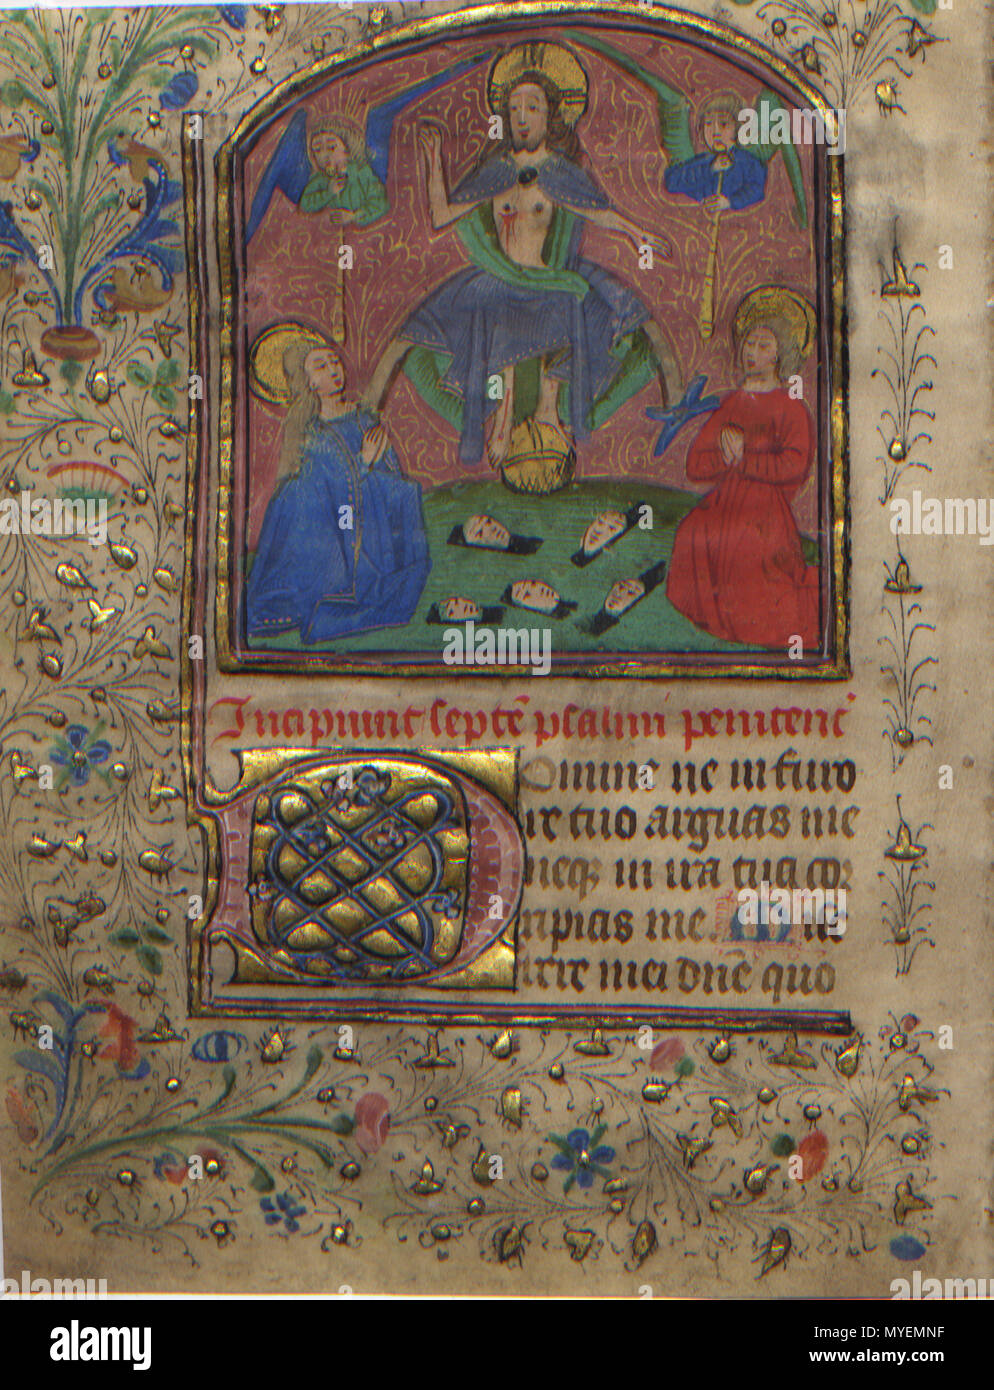 Incipiunt septē psalmi penitenc̄
Domine ne in furo
re tuo arguas me
neqꝫ in ira tua cor
ripias me. Mise
rere mei dn̄e quo
alamy
Image ID: MYEMNF
www.alamy.com